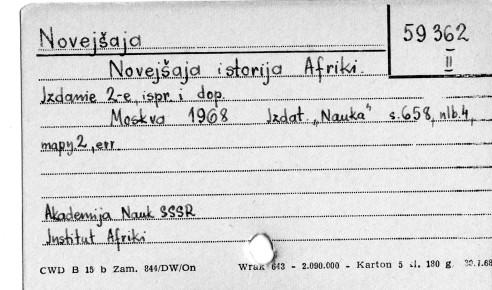 Novejšaja
59 362
II
Novejšaja istorija Afriki.
Izdanie 2-e, ispr. i dop.
Moskva 1968 Izdat. „Nauka" s. 658, nlb. 4,
mapy 2, err
Akademija Nauk SSSR
Institut Afriki
CWD B 15 b Zam. 844/DW/On Wrak 643 - 2.090.000 - Karton 5 kl. 180 g. 30.1.68